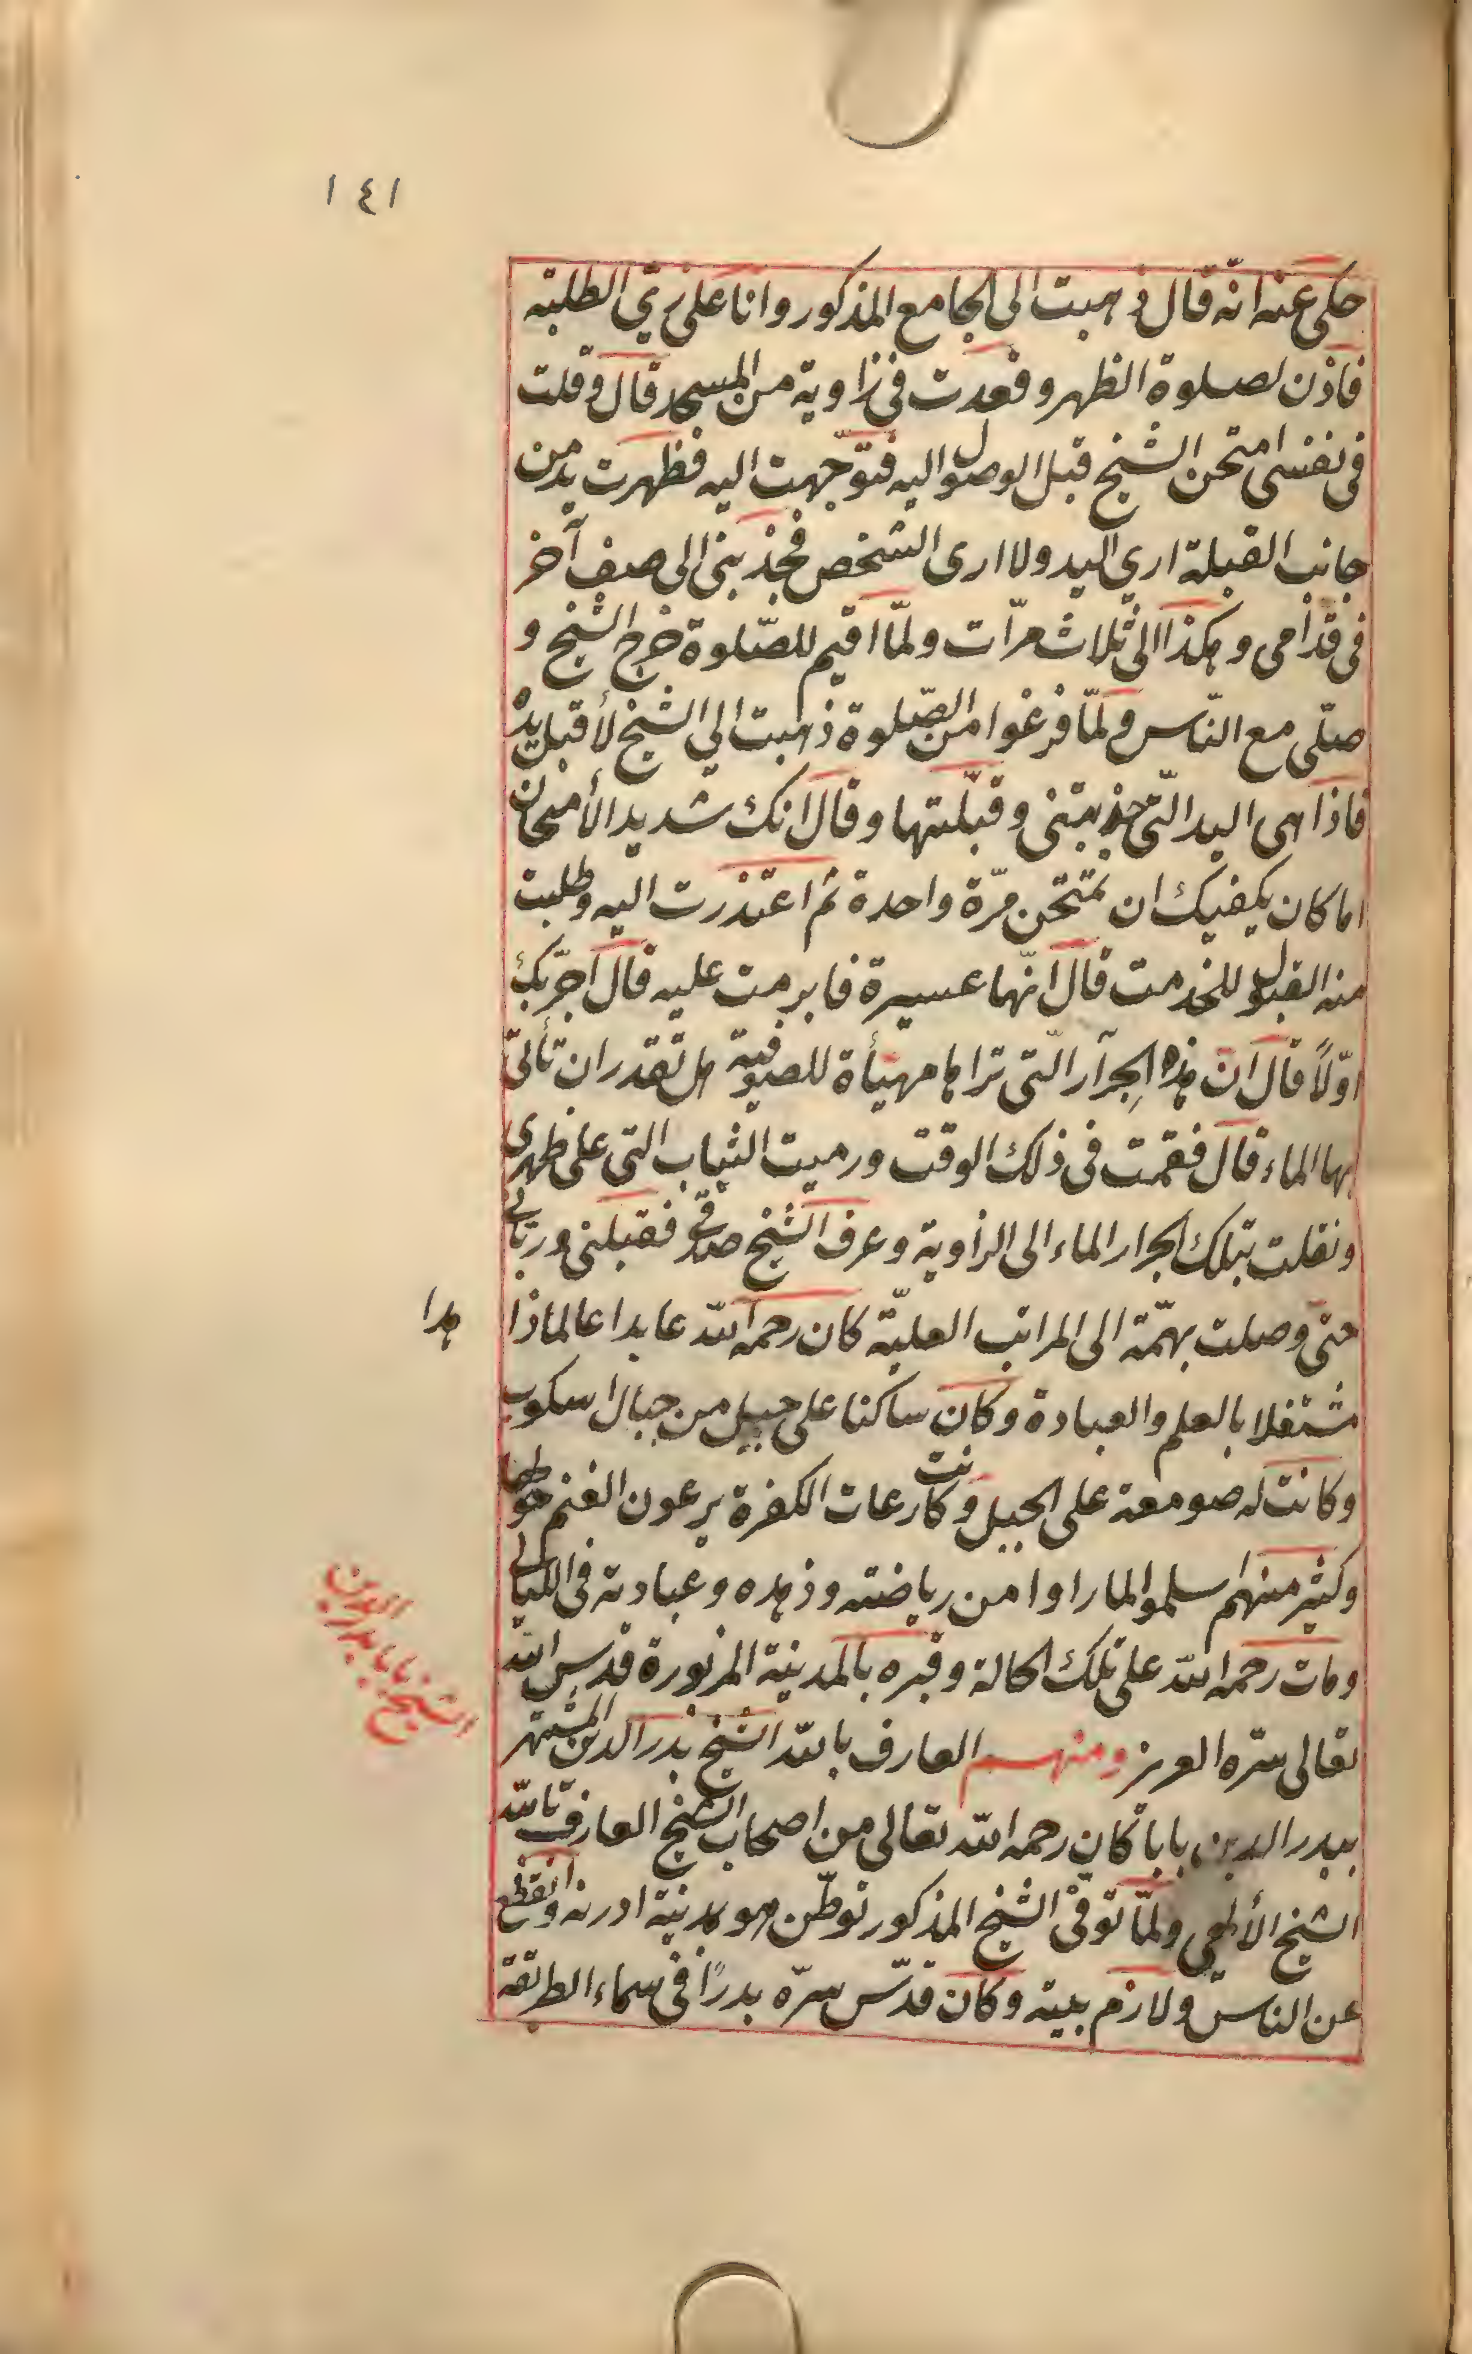 ١٤١
حكى عنه انّه قال ذهبت الى الجامع المذكور وانا على زيّ الطلبة
فاذن لصلوة الظهر وقعدت فى زاوية من المسجد قال وقلت
فى نفسى امتحن الشيخ قبل الوصول اليه فتوجّهت اليه فظهرت يد من
جانب القبلة ارى اليد ولا ارى الشخص فجذبتنى الى صف آخر
فى قدامى وهكذا الى ثلاث مرّات ولمّا اقيم للصّلوة خرج الشيخ و
صلّى مع النّاس ولمّا فرغوا من الصّلوة ذهبت الي الشيخ لأقبل يده
فاذا هى اليد الّتى جذبتنى وقبّلتها وقال انك شديد الأمتحان
اما كان يكفيك ان تمتحن مرّة واحدة ثم اعتذرت اليه وطلبت
منه القبول للخدمت قال انّها عسيرة فابرمت عليه قال اجرّبك
اوّلاً قال انّ هذه الجِرآر الّتى تراها مهيأة للصوفية هل تقدر ان تأتىّ
بها الماء قال فقمت فى ذلك الوقت ورميت الثياب التى على ظهرى
ونقلت بتلك الجرار الماء الى الزاوية وعرف الشيخ صدقى فقبلنى وربّانى
حتى وصلت بهمّته الى المراتب العليّة كان رحمه الله عابدا عالما زا
هدا
مشتغلا بالعلم والعبادة وكان ساكنا على جبل من جبال اسكوب
وكانت له صومعة على الجبل وكانت رعات الكفرة يرعون الغنم حولها
وكثير منهم اسلموا لما راوا من رياضته وزهده وعبادته فى الليالى
ومات رحمه الله على تلك الحالة وقبره بالمدينة المزبورة قدس الله
تعالى سرّه العزيز ومنهم العارف بالله الشيخ بدر الدين المشتهر
الشيخ بابا بدر الدين
ببدر الدين بابا كان رحمه الله تعالى من اصحاب الشيخ العارف بالله
الشيخ الألهى ولمّا توفّى الشيخ المذكور توطّن هو بمدينة ادرنه وانقطع
عن الناس ولازم بيته وكان قدّس سرّه بدرًا فى سماء الطريقة